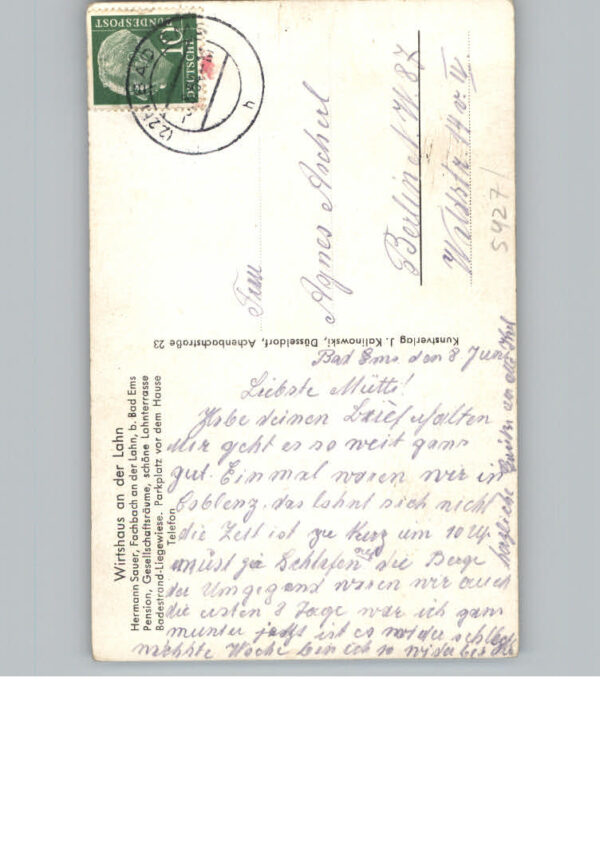 DEUTSCHE
BUNDESPOST
10
Frau
Agnes Ascherl
Berlin N.W 87
Waldstr. 14 v. IV.
5427/
Kunstverlag J. Kalinowski, Düsseldorf, Achenbachstraße 23
Wirtshaus an der Lahn
Hermann Sauer, Fachbach an der Lahn, b. Bad Ems
Pension, Gesellschaftsräume, schöne Lahnterrasse
Badestrand-Liegewiese. Parkplatz vor dem Hause
Telefon
Bad Ems, den 8 Juni
Liebste Mutti!
Habe deinen Brief erhalten
Mir geht es so weit ganz
gut. Einmal waren wir in
Coblenz. das lohnt sich nicht
die Zeit ist zu kurz um 10 Uhr
müst ja Schlafen auf die Berge
der Umgegend waren wir auch
die ersten 8 Tage war ich ganz
munter jetzt ist es wieder schlech
nächste Woche bin ich so wieder bei
herzliche Grüße an alle